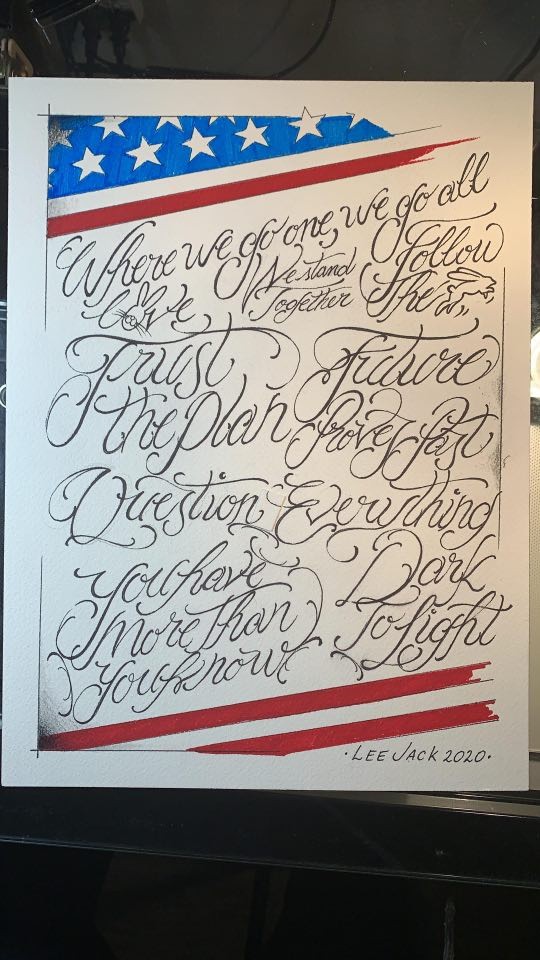 Where we go one, we go all
love
We stand
Together
Follow
The
Trust
the plan
Future
Proves Past
Question Everything
You have
more Than
You know
Dark
To Light
·LEE JACK 2020·